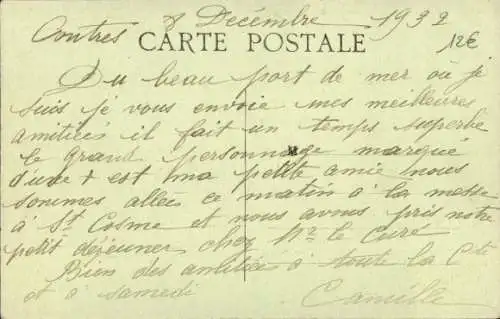 Contres 8 Décembre 1932
12€
CARTE POSTALE
Du beau port de mer où je
suis je vous envoie mes meilleures
amitiées il fait un temps superbe
le grand personnage marqué
d'une + est ma petite amie nous
sommes allées ce matin à la messe
à St Cosme et nous avons pris notre
petit déjeuner chez Mr le Curé
Bien des amitiées à toute la Cte
et à samedi
Camille